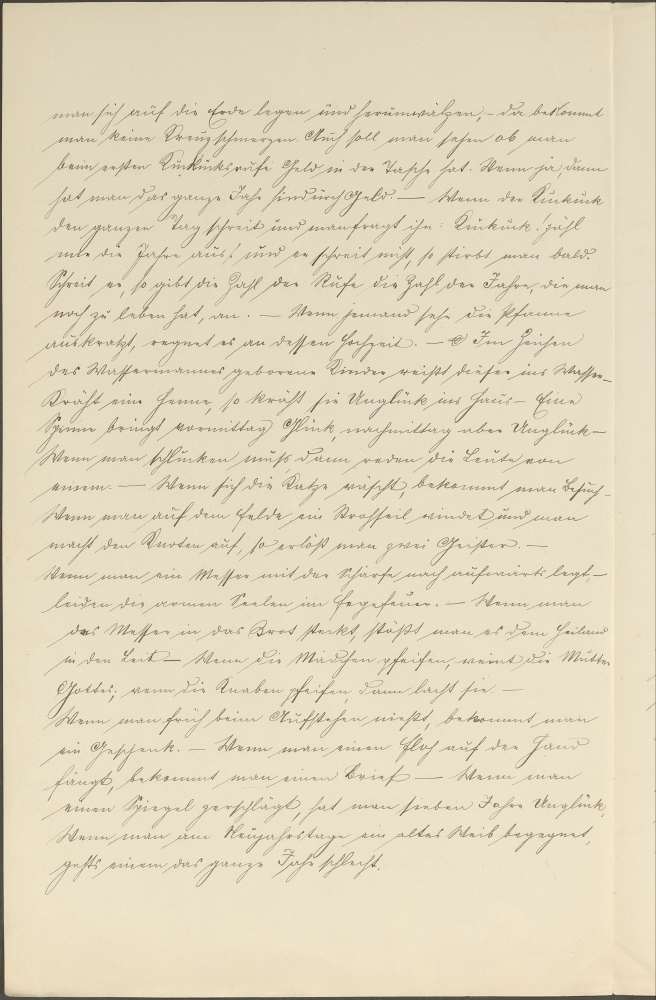 man sich auf die Erde legen und herumwälzen, – da bekommt
man keine Kreuzschmerzen. Auch soll man sehen ob man
beim ersten Kuckucksrufe Geld in der Tasche hat. Wenn ja, dann
hat man das ganze Jahr hindurch Geld. — Wenn der Kuckuck
den ganzen Tag schreit und man fragt ihn: Kuckuck! zähl
mir die Jahre aus! und er schreit nicht, so stirbt man bald.
Schreit er, so gibt die Zahl der Rufe die Zahl der Jahre, die man
noch zu leben hat, an. — Wenn jemand sehr die Pfanne
auskratzt, regnet es an dessen Hochzeit. — Im Zeichen
des Wassermannes geborene Kinder reißt dieser ins Wasser –
Kräht eine Henne, so kräht sie Unglück ins Haus – Eine
Spinne bringt vormittag Glück, nachmittag aber Unglück –
Wenn man schlucken muß, dann reden die Leute von
einem. — Wenn sich die Katze wäscht, bekommt man Besuch –
Wenn man auf dem Felde ein Strohseil windet und man
macht den Knoten auf, so erlöst man zwei Geister. —
Wenn man ein Messer mit der Schärfe nach aufwärts legt, –
leiden die armen Seelen im Fegefeuer. — Wenn man
das Messer in das Brot steckt, stößt man es dem Heiland
in den Leib – Wenn die Mädchen pfeifen, weint die Mutter
Gottes; wenn die Knaben pfeifen, dann lacht sie. —
Wenn man früh beim Aufstehen niest, bekommt man
ein Geschenk. – Wenn man einen Floh auf der Hand
fängt, bekommt man einen Brief — Wenn man
einen Spiegel zerschlägt, hat man sieben Jahre Unglück,
Wenn man am Neujahrstage ein altes Weib begegnet,
gehts einem das ganze Jahr schlecht.